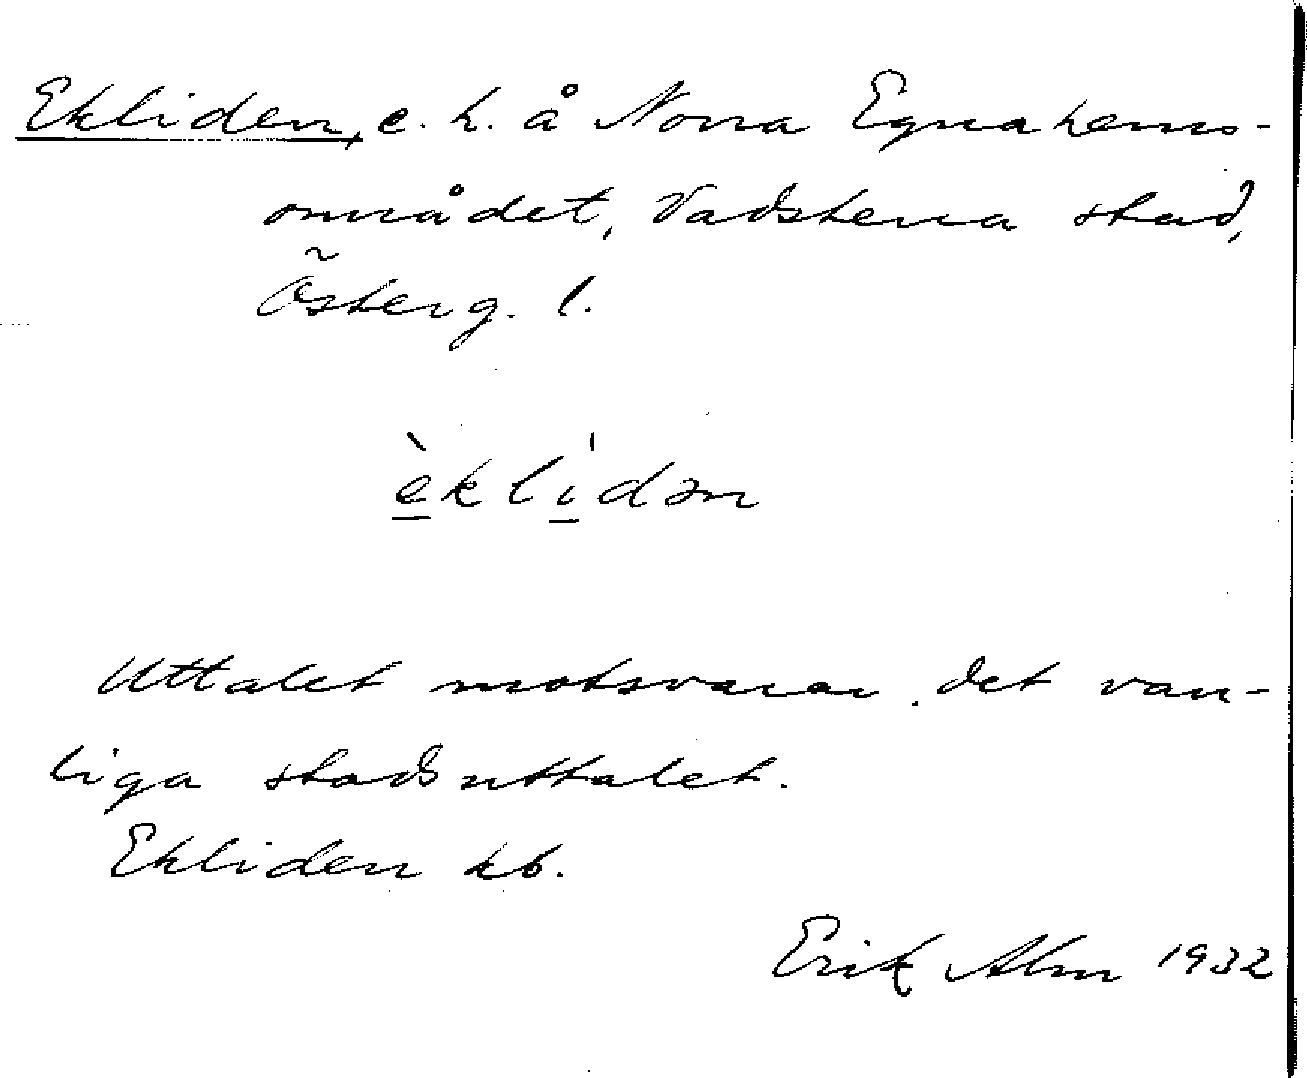 Ekliden, e. h. å Norra Egnahems-
området, Vadstena stad,
Österg. l.
èklìdən
Uttalet motsvarar det van-
liga stadsuttalet.
Ekliden kb.
Erik Alm 1932